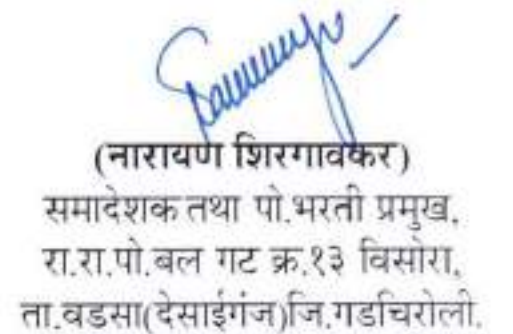 (नारायण शिरगावकर)
समादेशक तथा पो.भरती प्रमुख,
रा.रा.पो.बल गट क्र.१३ विसोरा,
ता.वडसा(देसाईगंज)जि.गडचिरोली.